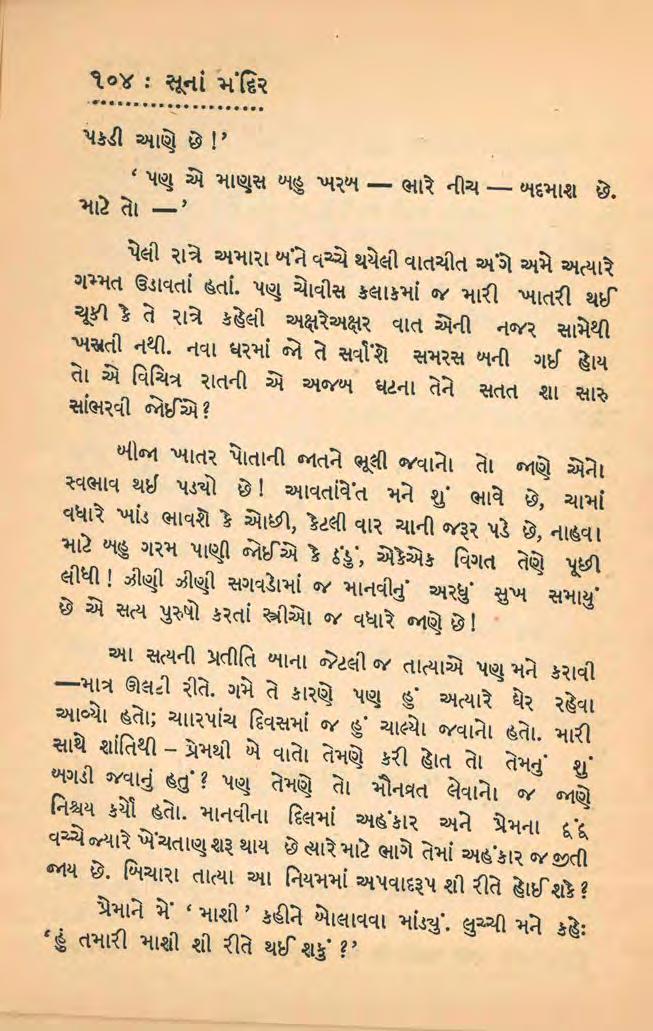 ૧૦૪ : સૂનાં મંદિર
પકડી આણે છે !’
‘ પણ એ માણસ બહુ ખરબ — ભારે નીચ — બદમાશ છે.
માટે તો —’
પેલી રાત્રે અમારા બંને વચ્ચે થયેલી વાતચીત અંગે અમે અત્યારે
ગમ્મત ઉડાવતાં હતાં. પણ ચોવીસ કલાકમાં જ મારી ખાતરી થઈ
ચૂકી કે તે રાત્રે કહેલી અક્ષરેઅક્ષર વાત એની નજર સામેથી
ખસતી નથી. નવા ઘરમાં જો તે સર્વાંશે સમરસ બની ગઈ હોય
તો એ વિચિત્ર રાતની એ અજબ ઘટના તેને સતત શા સારુ
સાંભરવી જોઈએ ?
બીજા ખાતર પોતાની જાતને ભૂલી જવાનો તો જાણે એનો
સ્વભાવ થઈ પડ્યો છે ! આવતાંવેંત મને શું ભાવે છે, ચામાં
વધારે ખાંડ ભાવશે કે ઓછી, કેટલી વાર ચાની જરૂર પડે છે, નાહવા
માટે બહુ ગરમ પાણી જોઈએ કે ઠંડું, એકેએક વિગત તેણે પૂછી
લીધી ! ઝીણી ઝીણી સગવડોમાં જ માનવીનું અરધું સુખ સમાયું
છે એ સત્ય પુરુષો કરતાં સ્ત્રીઓ જ વધારે જાણે છે !
આ સત્યની પ્રતીતિ બાના જેટલી જ તાત્યાએ પણ મને કરાવી
—માત્ર ઊલટી રીતે. ગમે તે કારણે પણ હું અત્યારે ઘેર રહેવા
આવ્યો હતો; ચારપાંચ દિવસમાં જ હું ચાલ્યો જવાનો હતો. મારી
સાથે શાંતિથી – પ્રેમથી બે વાતો તેમણે કરી હોત તો તેમનું શું
બગડી જવાનું હતું ? પણ તેમણે તો મૌનવ્રત લેવાનો જ જાણે
નિશ્ચય કર્યો હતો. માનવીના દિલમાં અહંકાર અને પ્રેમના દ્વંદ્વ
વચ્ચે જ્યારે ખેંચતાણ શરૂ થાય છે ત્યારે માટે ભાગે તેમાં અહંકાર જ જીતી
જાય છે. બિચારા તાત્યા આ નિયમમાં અપવાદરૂપ શી રીતે હોઈ શકે ?
પ્રેમાને મેં ‘ માશી ’ કહીને બોલાવવા માંડ્યું. લુચ્ચી મને કહેઃ
‘હું તમારી માશી શી રીતે થઈ શકું ?’